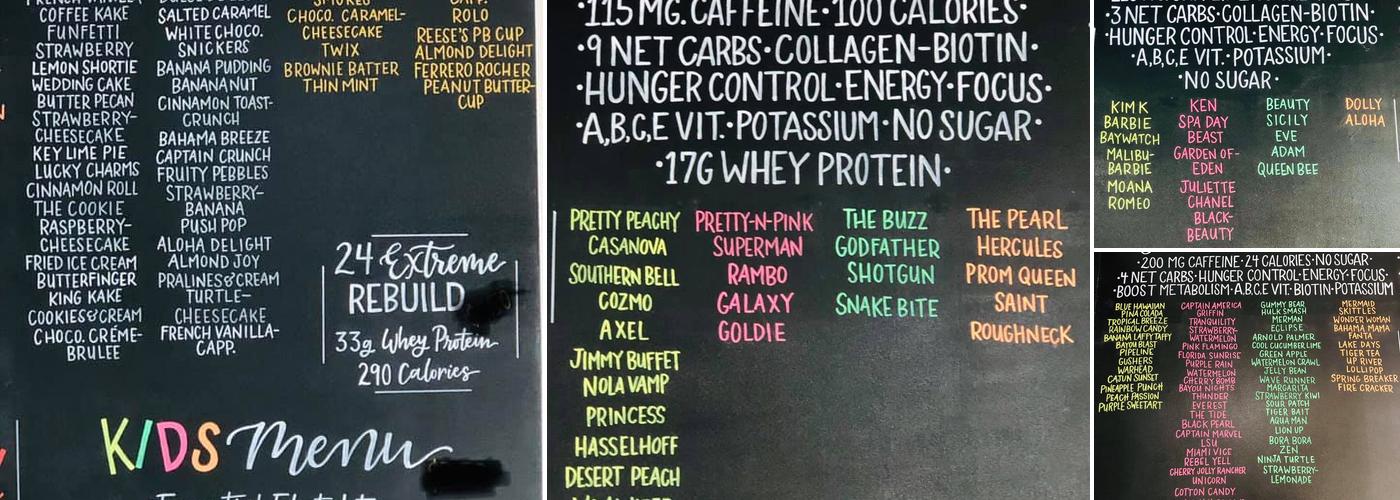 COFFEE KAKE
FUNFETTI
STRAWBERRY
LEMON SHORTIE
WEDDING CAKE
BUTTER PECAN
STRAWBERRY-
CHEESECAKE
KEY LIME PIE
LUCKY CHARMS
CINNAMON ROLL
THE COOKIE
RASPBERRY-
CHEESECAKE
FRIED ICE CREAM
BUTTERFINGER
KING KAKE
COOKIES&CREAM
CHOCO. CRÉME-
BRULEE
SALTED CARAMEL
WHITE CHOCO.
SNICKERS
BANANA PUDDING
BANANA NUT
CINNAMON TOAST-
CRUNCH
BAHAMA BREEZE
CAPTAIN CRUNCH
FRUITY PEBBLES
STRAWBERRY-
BANANA
PUSH POP
ALOHA DELIGHT
ALMOND JOY
PRALINES&CREAM
TURTLE-
CHEESECAKE
FRENCH VANILLA-
CAPP.
CHOCO. CARAMEL-
CHEESECAKE
TWIX
BROWNIE BATTER
THIN MINT
ROLO
REESE'S PB CUP
ALMOND DELIGHT
FERRERO ROCHER
PEANUT BUTTER-
CUP
24 Extreme
REBUILD
33g Whey Protein
290 Calories
KIDS Menu
·115 MG. CAFFEINE·100 CALORIES·
·9 NET CARBS·COLLAGEN-BIOTIN·
·HUNGER CONTROL·ENERGY·FOCUS·
·A,B,C,E VIT.·POTASSIUM·NO SUGAR·
·17G WHEY PROTEIN·
PRETTY PEACHY
CASANOVA
SOUTHERN BELL
COZMO
AXEL
JIMMY BUFFET
NOLA VAMP
PRINCESS
HASSELHOFF
DESERT PEACH
PRETTY-N-PINK
SUPERMAN
RAMBO
GALAXY
GOLDIE
THE BUZZ
GODFATHER
SHOTGUN
SNAKE BITE
THE PEARL
HERCULES
PROM QUEEN
SAINT
ROUGHNECK
·3 NET CARBS·COLLAGEN-BIOTIN·
·HUNGER CONTROL·ENERGY·FOCUS·
A,B,C,E VIT.·POTASSIUM·
·NO SUGAR·
KIM K
BARBIE
BAYWATCH
MALIBU-
BARBIE
MOANA
ROMEO
KEN
SPA DAY
BEAST
GARDEN OF-
EDEN
JULIETTE
CHANEL
BLACK-
BEAUTY
BEAUTY
SICILY
EVE
ADAM
QUEEN BEE
DOLLY
ALOHA
·200 MG CAFFEINE·24 CALORIES·NO SUGAR·
·4 NET CARBS·HUNGER CONTROL·ENERGY·FOCUS·
·BOOST METABOLISM·A,B,C,E VIT·BIOTIN·POTASSIUM
BLUE HAWAIIAN
PINA COLADA
TROPICAL BREEZE
RAINBOW CANDY
BANANA LAFFY TAFFY
BAYOU BLAST
PIPELINE
GUSHERS
WARHEAD
CAJUN SUNSET
PINEAPPLE PUNCH
PEACH PASSION
PURPLE SWEETART
CAPTAIN AMERICA
GRIFFIN
TRANQUILITY
STRAWBERRY-
WATERMELON
PINK FLAMINGO
FLORIDA SUNRISE
PURPLE RAIN
WATERMELON
CHERRY BOMB
BAYOU NIGHTS
THUNDER
EVEREST
THE TIDE
BLACK PEARL
CAPTAIN MARVEL
LSU
MIAMI VICE
REBEL YELL
CHERRY JOLLY RANCHER
UNICORN
COTTON CANDY
GUMMY BEAR
HULK SMASH
MERMAN
ECLIPSE
ARNOLD PALMER
COOL CUCUMBER LIME
GREEN APPLE
WATERMELON CRAWL
JELLY BEAN
WAVE RUNNER
MARGARITA
STRAWBERRY KIWI
SOUR PATCH
TIGER BAIT
AQUA MAN
LION UP
BORA BORA
ZEN
NINJA TURTLE
STRAWBERRY-
LEMONADE
MERMAID
SKITTLES
WONDER WOMAN
BAHAMA MAMA
FANTA
LAKE DAYS
TIGER TEA
UP RIVER
LOLLIPOP
SPRING BREAKER
FIRE CRACKER